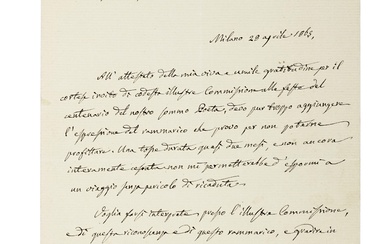 Milano 29 aprile 1865,
All' attestato della mia viva e umile gratitudine per il
cortese invito di codesta illustre Commissione alle feste del
centenario del nostro sommo Poeta, devo pur troppo aggiungere
l'espressione del rammarico che provo per non poterne
profittare. Una tosse durata quasi due mesi, e non ancora
interamente cessata non mi permetterebbe d'espormi a
un viaggio senza pericolo di ricaduta.
Voglia farsi interprete presso l'illustre Commissione,
e di questa riconoscenza e di questo rammarico, e gradire in